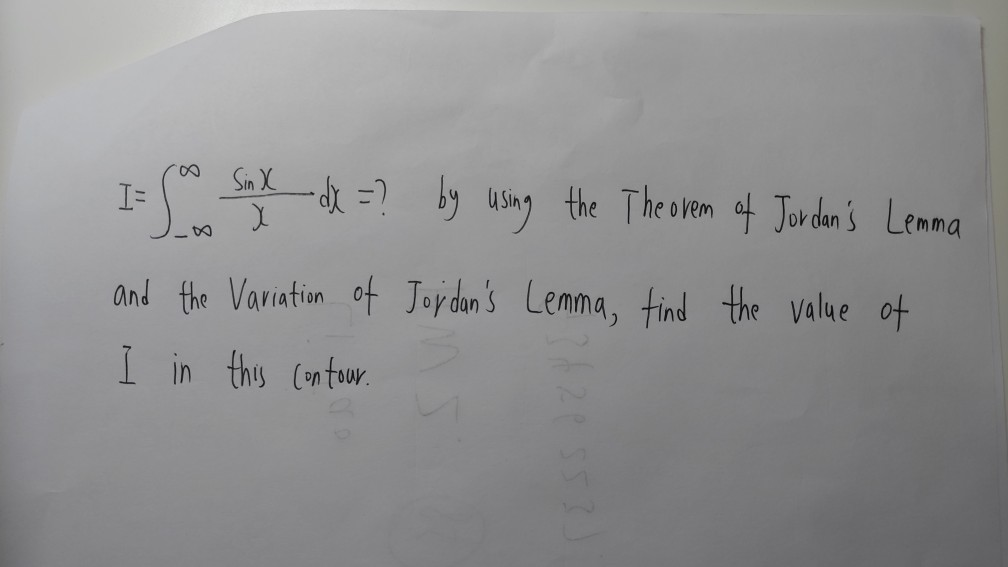 I = ∫_{-∞}^{∞} \frac{Sin x}{x} dx = ? by using the Theorem of Jordan's Lemma
and the Variation of Jordan's Lemma, find the value of
I in this contour.